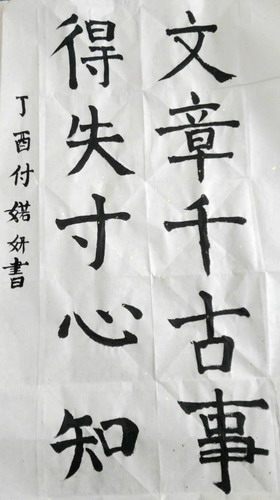 文章千古事
得失寸心知
丁酉付婼妍書